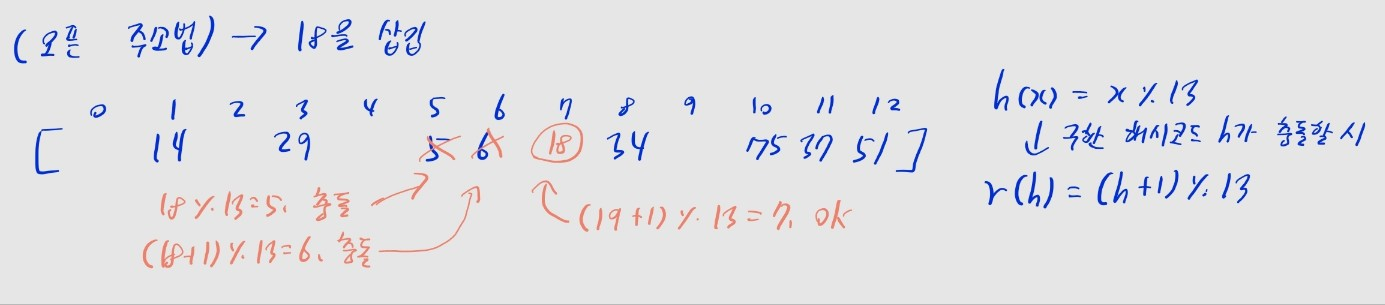 (오픈 주소법) → 18을 삽입
0 1 2 3 4 5 6 7 8 9 10 11 12
[ 14 29 5 6 18 34 75 37 51 ]
18 % 13 = 5, 충돌
(18+1) % 13 = 6, 충돌
(19+1) % 13 = 7, ok
h(x) = x % 13
↓ 구한 해시코드 h가 충돌할 시
r(h) = (h+1) % 13